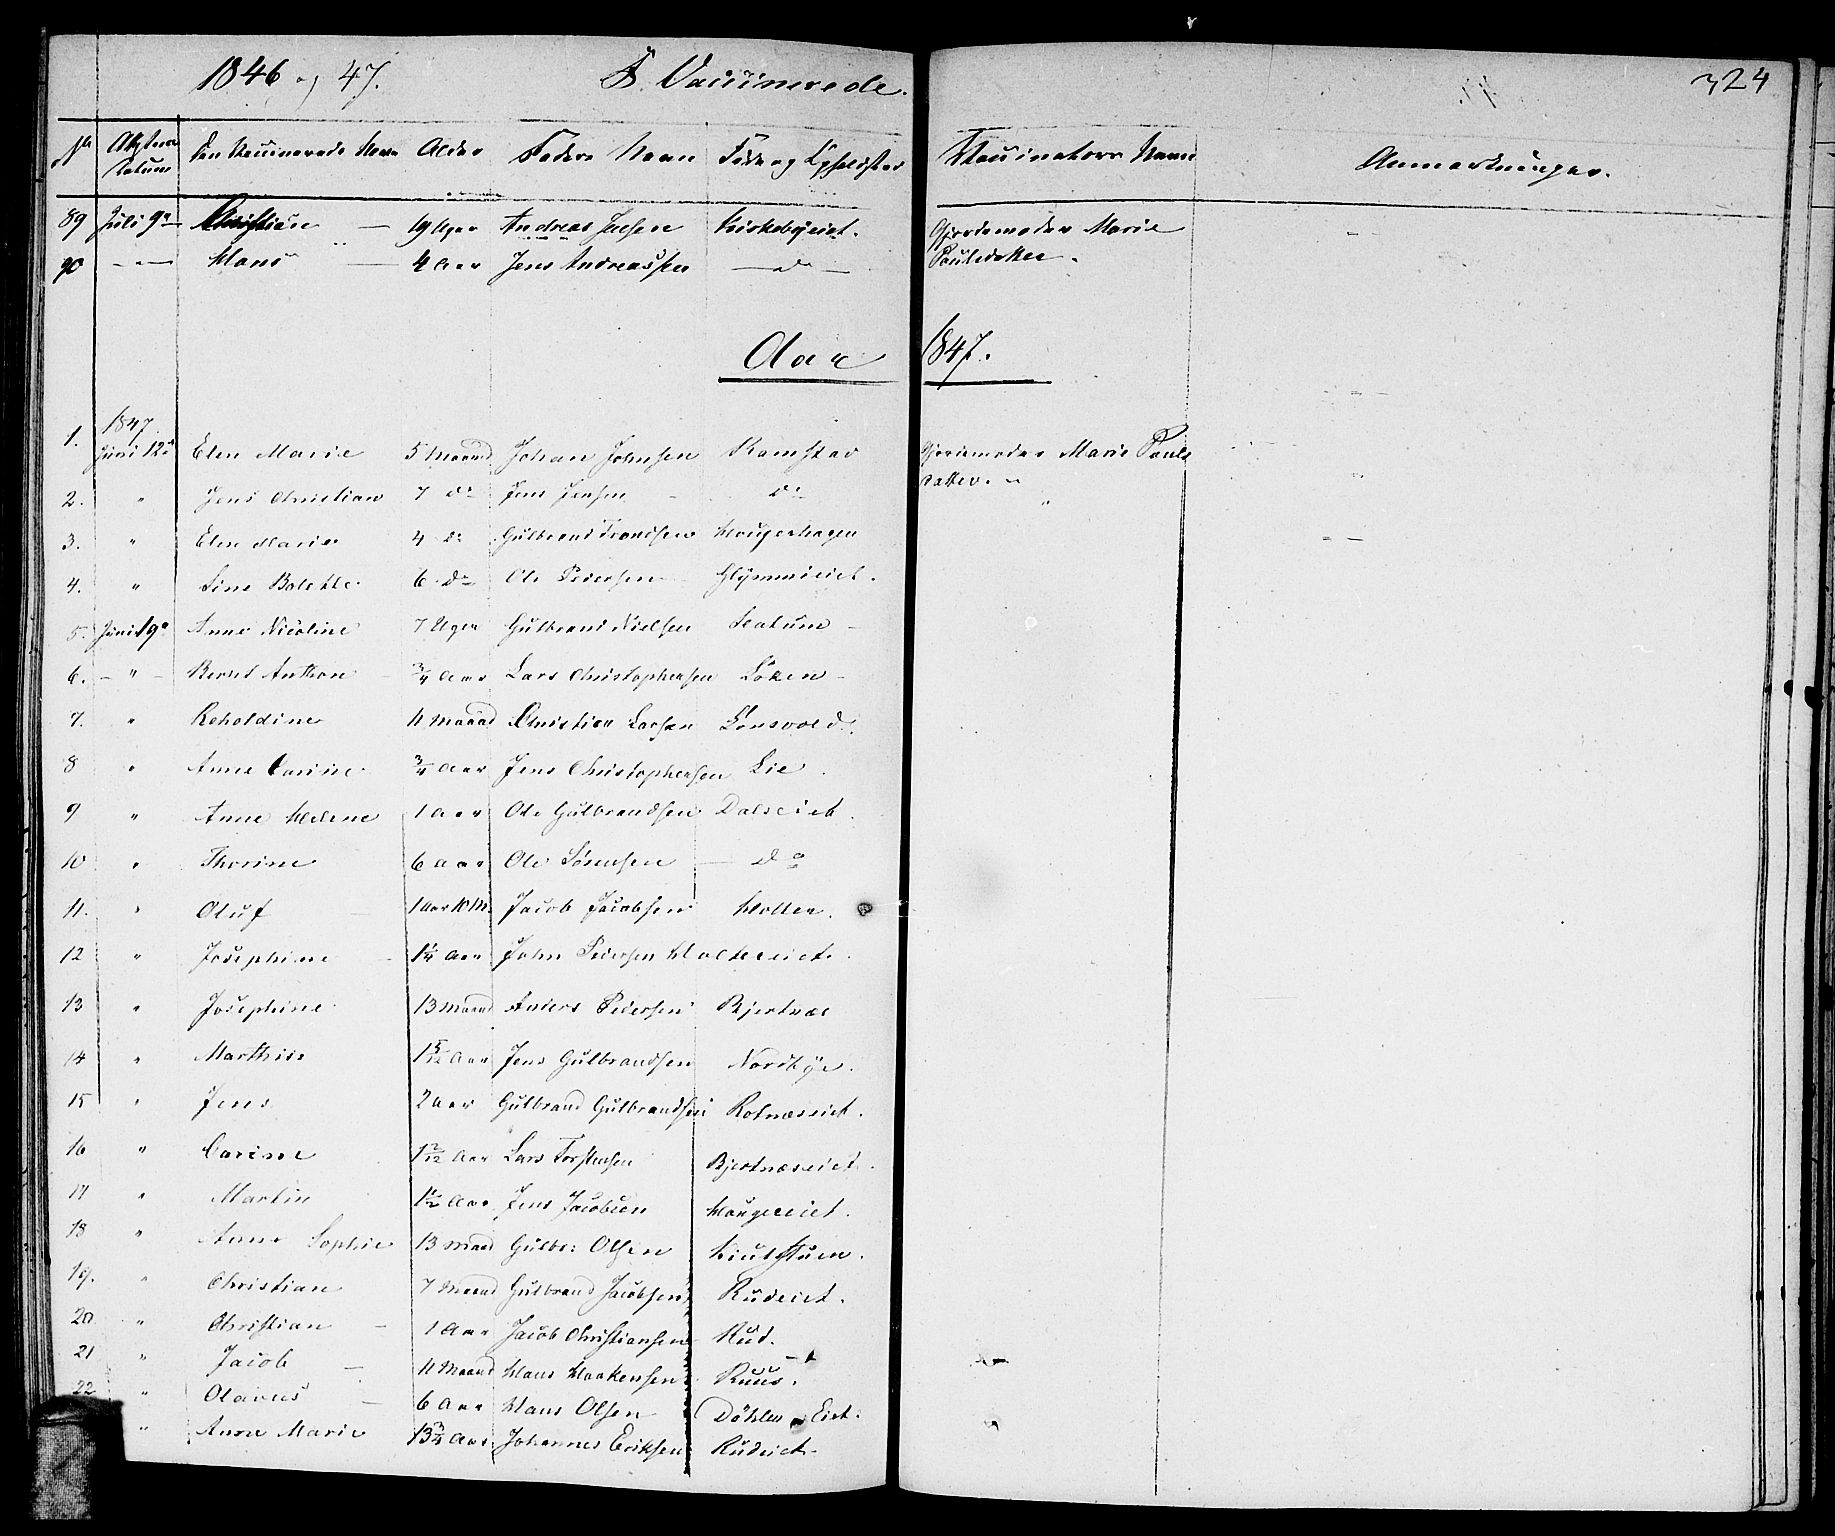 1846 og 47. F. Vaccinerede. 324
No Attestens Datum Den Vaccineredes Navn Alder Faders Navn Føde og Opholdssted Vaccinators Navn Anmærkninger.
89 Juli 9de Christian — 19 Uger Andreas Kirkebyeiet. Gjordemoder Marie
90 — " — Hans — 4 Aar Jens Andreassen — do — Paulsdatter.
Aar 1847.
1847.
1. Juni 12te Elen Marie 5 Maaned Johan Johnsen Ramstad Gjordemoder Marie Pauls
2. " Jens Christian 7 do Jens Jensen do datter. "
3. " Elen Marie 4 do Gulbrand Trondsen Haugerhagen
4. " Line Bolette 6 do Ole Pedersen Glÿmmieiet.
5. Juni 19de Anne Nicoline 7 Uger Gulbrand Nielsen
6. — " — Bernt Anthon 3/4 Aar Lars Christophersen Løken
7. " Reholdine 11 Maaned Christian Larsen
8 " Anne Carine 3/4 Aar Jens Christophersen Lie
9 " Anne Helene 1 Aar Ole Gulbrandsen Dalseiet
10 " Thorine 6 Aar Ole Sørensen — do
11. " Oluf 1 Aar 10 M. Jacob Jacobsen Holter.
12 " Josephine 1 1/4 Aar John Pedersen Holtereiet.
13 " Josephine 13 Maaned Anders Pedersen Bjertnæs
14 " Marthie 1 5/12 Aar Jens Gulbrandsen Nordbÿe.
15 " Jens 2 Aar Gulbrand Gulbrandsen Rotnæseiet.
16 " Carine 1 2/12 Aar Lars Torstensen Bjertnæseiet.
17 " Martin 1 1/2 Aar Jens Jacobsen Haugereiet.
18 " Anne Sophie 13 Maaned Gulbr: Olsen
19. " Christian 7 Maaned Gulbrand Jacobsen Rudeiet.
20 " Christian — 1 Aar Jacob Christiansen Rud.
21 " Jacob — 11 Maaned Hans Haakensen Ruus.
22 " Olavus — 6 Aar Hans Olsen Døhlen Eiet.
" Anne Marie 13 3/4 Aar Johannes Eriksen Rudeiet